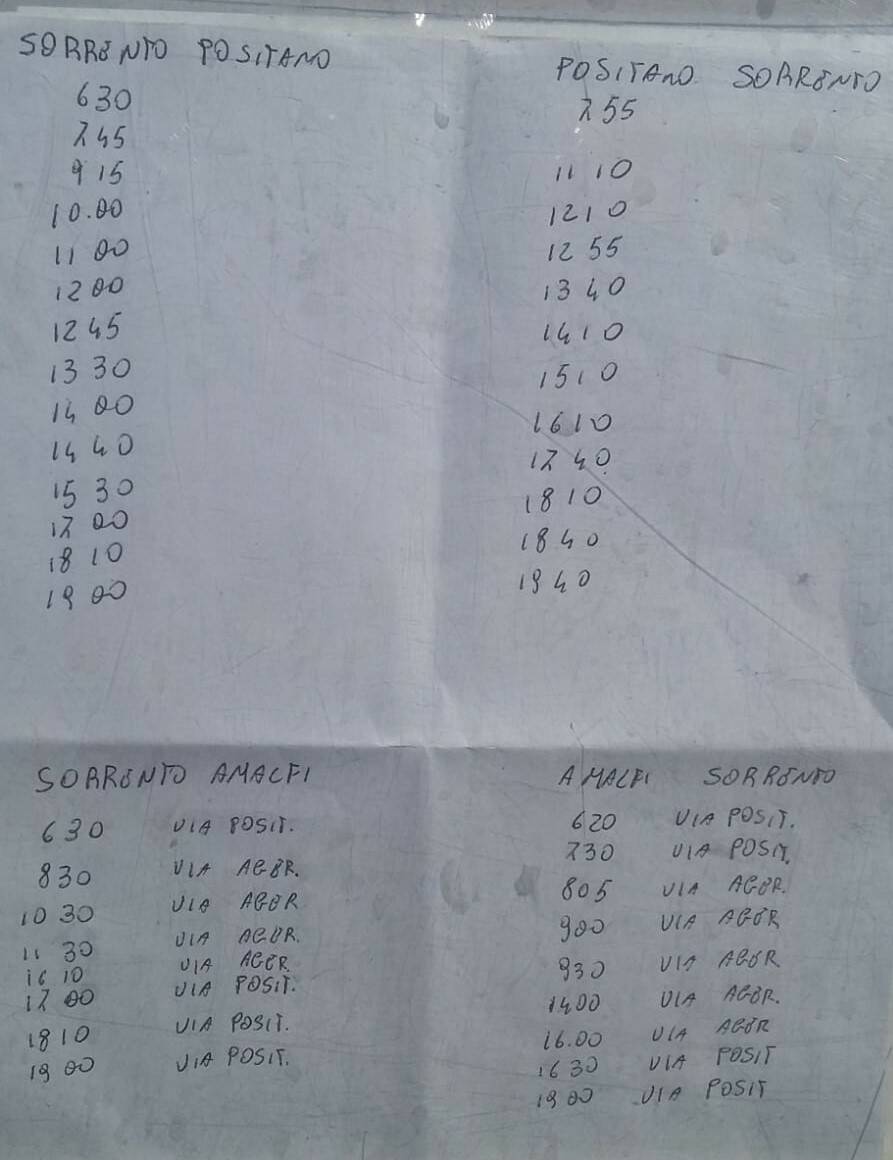 SORRENTO POSITANO
630
745
9 15
10.00
11 00
12 00
12 45
13 30
14 00
14 40
15 30
17 00
18 10
19 00
POSITANO SORRENTO
7 55
11 10
12 10
12 55
13 40
14 10
15 10
16 10
17 40
18 10
18 40
19 40
SORRENTO AMALFI
6 30 VIA POSIT.
8 30 VIA AGER.
10 30 VIA AGER
11 30 VIA AGER.
16 10 VIA AGER
17 00 VIA POSIT.
18 10 VIA POSIT.
19 00 VIA POSIT.
AMALFI SORRENTO
620 VIA POSIT.
730 VIA POSIT.
805 VIA AGER.
900 VIA AGER
930 VIA AGER
1400 VIA AGER.
16.00 VIA AGER
16 30 VIA POSIT
19 00 VIA POSIT